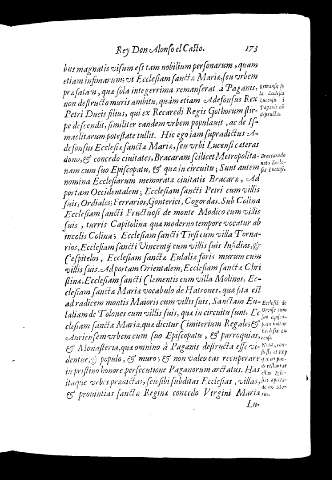 Rey Don Alonso el Casto. 173
bus magnatis visum est tam nobilium personarum, quam
etiam infimarum, ut Ecclesiam sanctæ Mariæ, seu urbem
præfatam, quæ sola integerrima remanserat à Paganis,
non destructo muris ambitu, quàm etiam Adefonsus Rex
Petri Ducis filius, qui ex Recaredi Regis Gothorum stir-
pe descendit, similiter eandem urbem populavit, ac de Is-
maelitarum potestate tulit. His ego iam supradictus A-
defonsus Ecclesiæ sanctæ Mariæ, seu urbi Lucensi cateras
dono, & concedo civitates, Bracaram scilicet Metropolita-
nam cum suo Episcopatu, & quæ in circuitu; Sunt autem
nomina Ecclesiarum memorata civitatis Bracaræ, Ad
portam Occidentalem; Ecclesiam sancti Petri cum villis
suis, Ordiales; Ferrarios, Gonterici, Cogordas. Sub Colina
Ecclesiam sancti Fructuosi de monte Modico cum villis
suis, turris Capitolina quæ moderno tempore vocatur ab
incolis Colina; Ecclesiam sancti Tirsi cum villa Torna-
rios, Ecclesiam sancti Vincentij cum villis suis Insidias, &
Cespitelos, Ecclesiam sanctæ Eulaliæ foris murum cum
villis suis. Ad portam Orientalem, Ecclesiam sanctæ Chri
stinæ, Ecclesiam sancti Clementis cum villa Molinos. Ec-
clesiam sanctæ Mariæ vocabulo de Hatronez, quæ sita est
ad radicem montis Maiori cum villis suis, Sanctam Eu-
laliam de Tolones cum villis suis, quæ in circuitu sunt. Ec
clesiam sanctæ Mariæ, quæ dicitur Cimitorium Regale; &
Auriensem urbem cum suo Episcopatu, & parroquias,
& Monasteria, quæ omnino à Paganis destructa esse vi-
dentur, & populo, & muro, & non valeo eas recuperare
in pristino honore persecutione Paganorum arctatus. Has
itaque urbes prædictas, seu sibi subditas Ecclesias, villas,
& provintias sanctæ Reginæ concedo Virgini Mariæ
Lu-